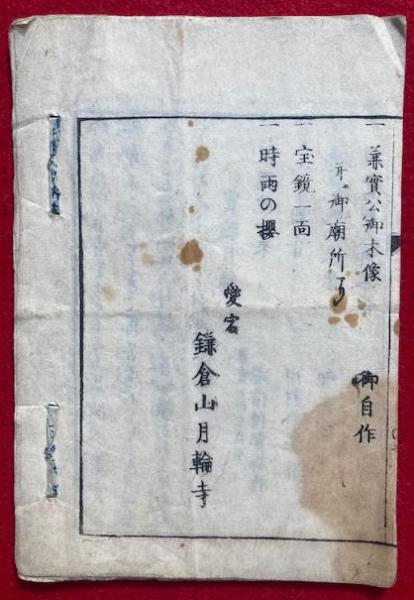 一 兼實公御木像 御自作
并御廟所有
一 宝鏡一面
一 時雨の櫻
愛宕
鎌倉山月輪寺